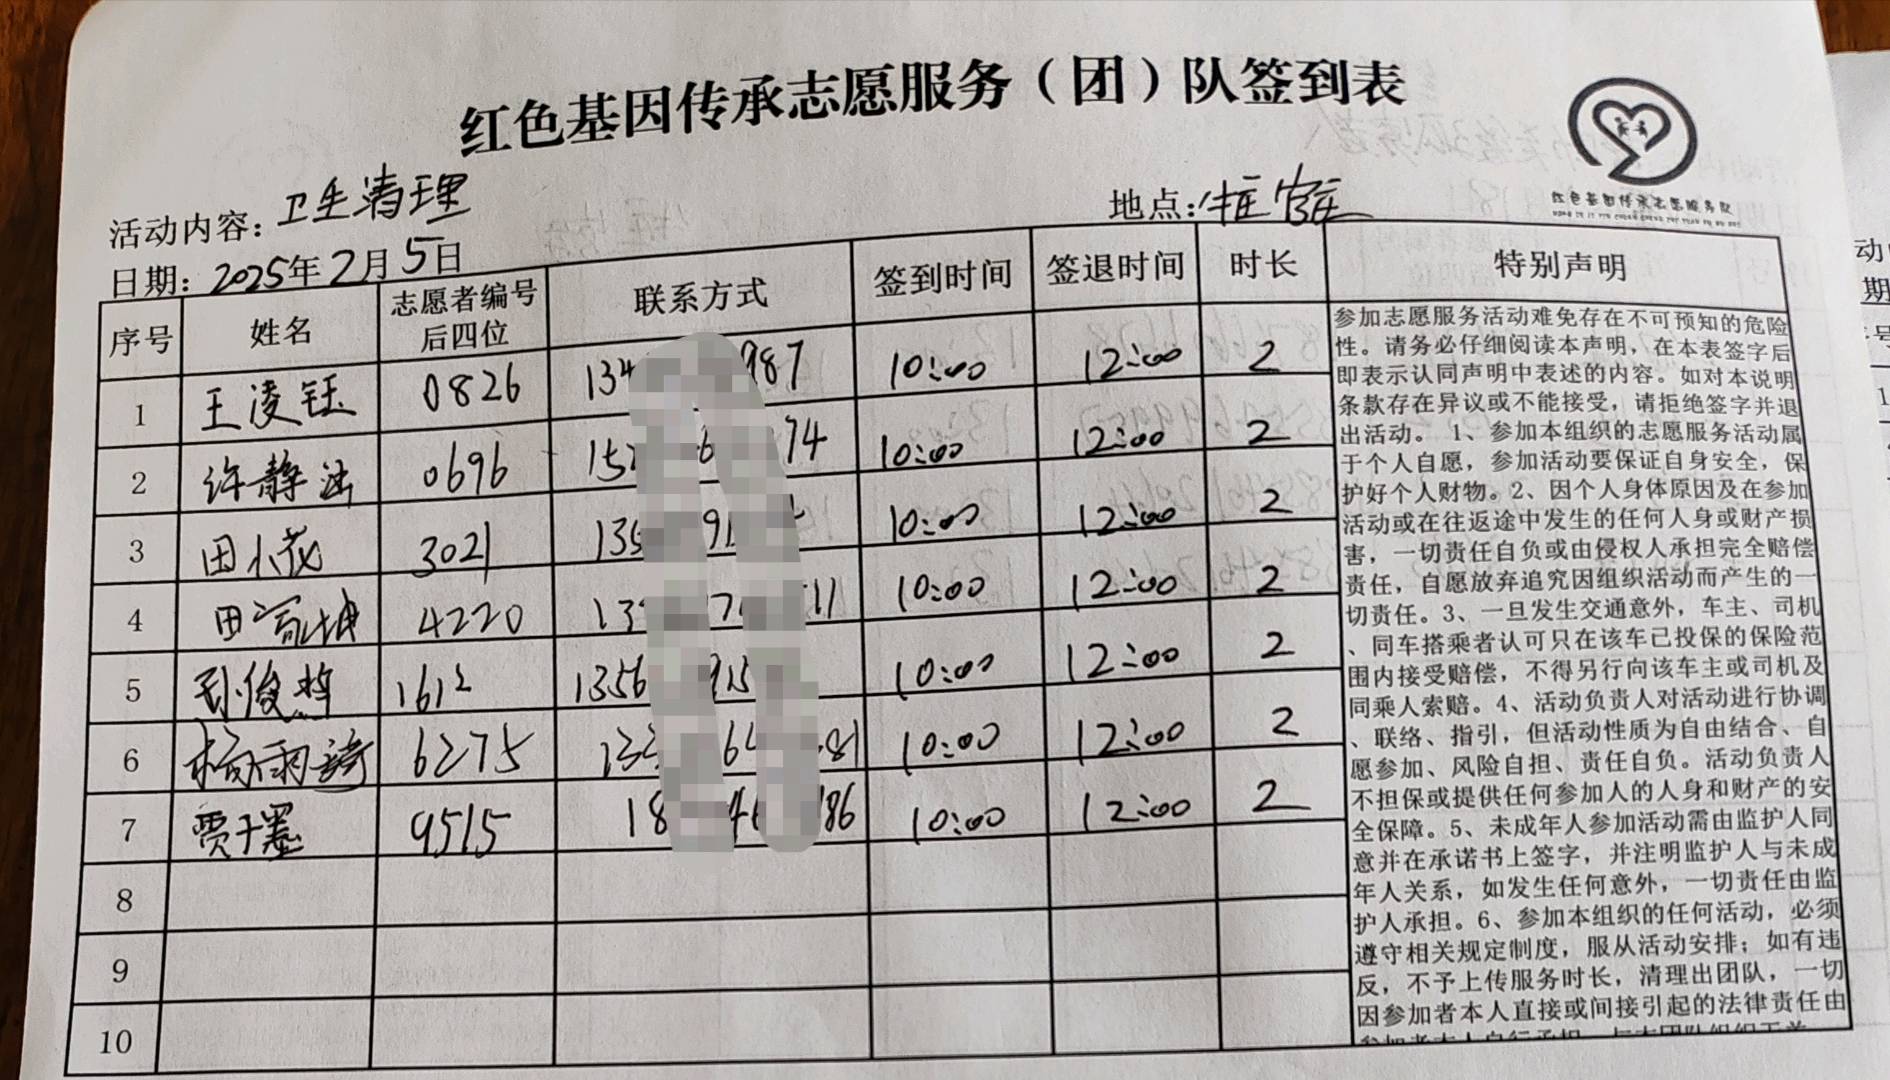 红色基因传承志愿服务（团）队签到表
红色基因传承志愿服务队
活动内容：卫生清理
地点：
日期：2025年2月5日
序号 姓名 志愿者编号后四位 联系方式 签到时间 签退时间 时长 特别声明
1 王凌钰 0826 134 987 10:00 12:00 2
2 许静涵 0696 15 74 10:00 12:00 2
3 田小茂 3021 135 91 10:00 12:00 2
4 田富坤 4220 13 7 11 10:00 12:00 2
5 俊 1612 1356 915 10:00 12:00 2
6 杨雨琦 6275 133 6 81 10:00 12:00 2
7 贾子墨 9515 18 46 86 10:00 12:00 2
8
9
10
参加志愿服务活动难免存在不可预知的危险
性。请务必仔细阅读本声明，在本表签字后
即表示认同声明中表述的内容。如对本说明
条款存在异议或不能接受，请拒绝签字并退
出活动。 1、参加本组织的志愿服务活动属
于个人自愿，参加活动要保证自身安全，保
护好个人财物。2、因个人身体原因及在参加
活动或在往返途中发生的任何人身或财产损
害，一切责任自负或由侵权人承担完全赔偿
责任，自愿放弃追究因组织活动而产生的一
切责任。3、一旦发生交通意外，车主、司机
、同车搭乘者认可只在该车已投保的保险范
围内接受赔偿，不得另行向该车主或司机及
同乘人索赔。4、活动负责人对活动进行协调
、联络、指引，但活动性质为自由结合、自
愿参加、风险自担、责任自负。活动负责人
不担保或提供任何参加人的人身和财产的安
全保障。5、未成年人参加活动需由监护人同
意并在承诺书上签字，并注明监护人与未成
年人关系，如发生任何意外，一切责任由监
护人承担。6、参加本组织的任何活动，必须
遵守相关规定制度，服从活动安排；如有违
反，不予上传服务时长，清理出团队，一切
因参加者本人直接或间接引起的法律责任由